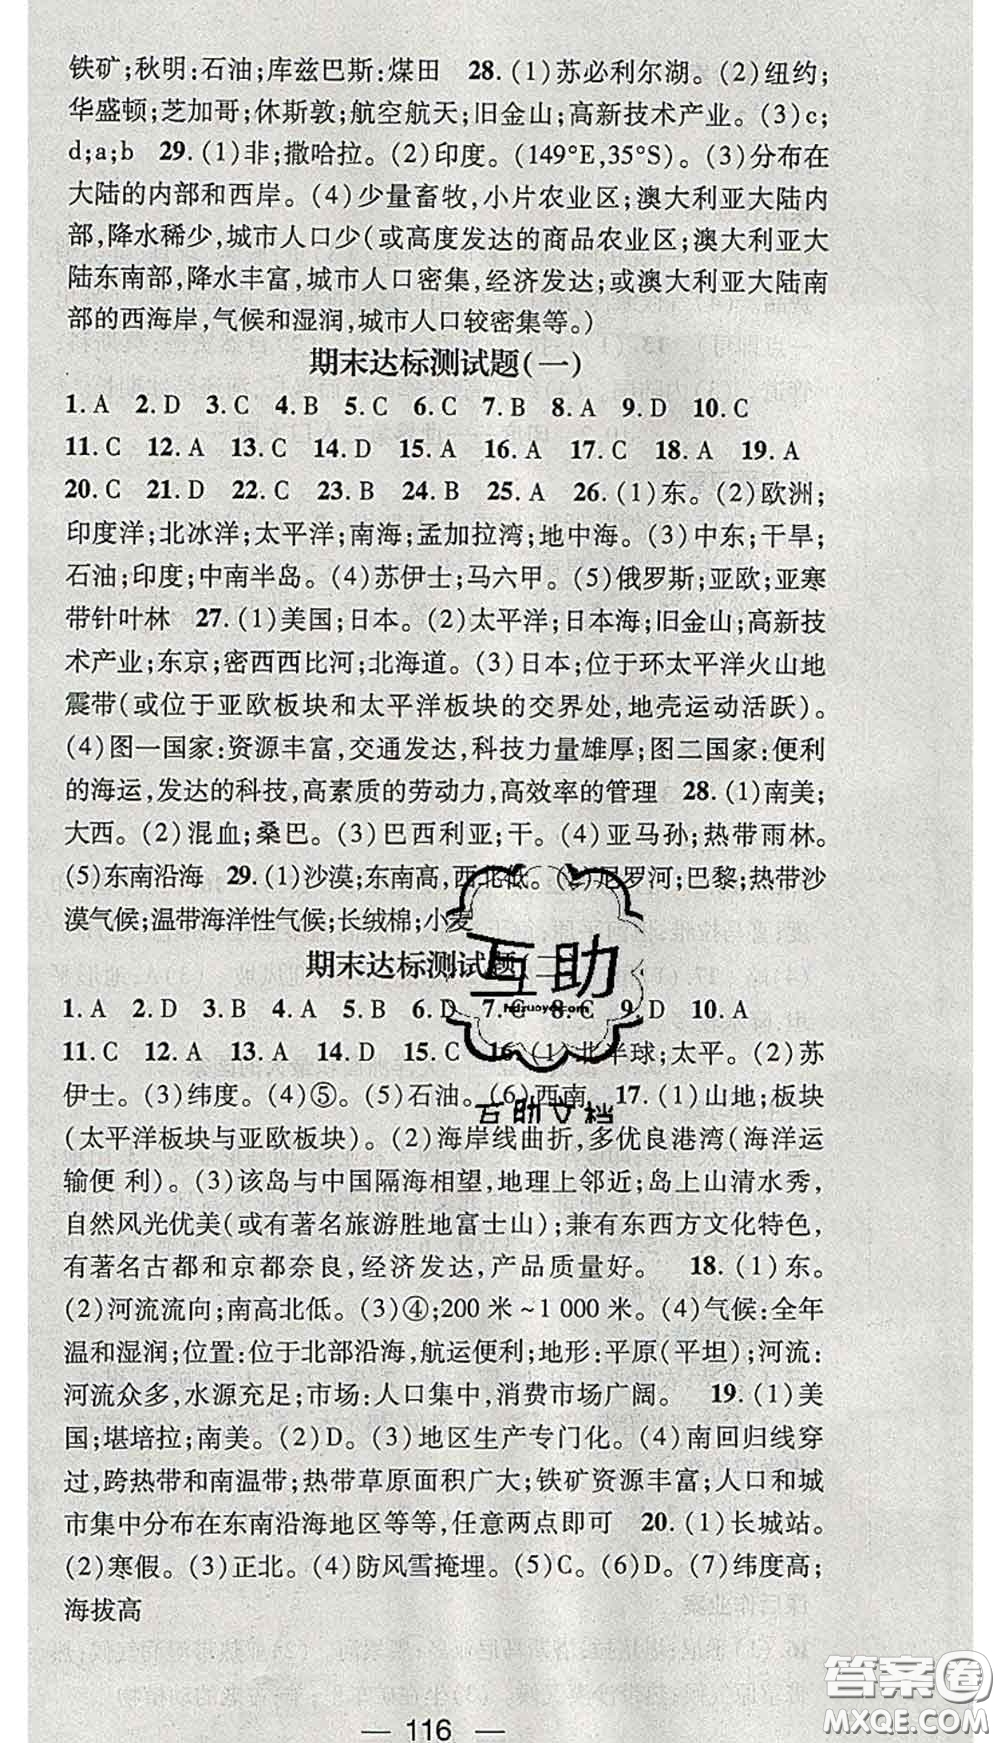 铁矿;秋明:石油;库兹巴斯:煤田 28.(1)苏必利尔湖。(2)纽约;
华盛顿;芝加哥;休斯敦;航空航天;旧金山;高新技术产业。(3)c;
d;a;b 29.(1)非;撒哈拉。(2)印度。(149°E,35°S)。(3)分布在
大陆的内部和西岸。(4)少量畜牧,小片农业区;澳大利亚大陆内
部,降水稀少,城市人口少(或高度发达的商品农业区;澳大利亚大
陆东南部,降水丰富,城市人口密集,经济发达;或澳大利亚大陆南
部的西海岸,气候和湿润,城市人口较密集等。)
期末达标测试题(一)
1. A 2. D 3. C 4. B 5. C 6. C 7. B 8. A 9. D 10. C
11. C 12. A 13. C 14. D 15. A 16. A 17. C 18. A 19. A
20. C 21. D 22. C 23. B 24. B 25. A 26.(1)东。(2)欧洲;
印度洋;北冰洋;太平洋;南海;孟加拉湾;地中海。(3)中东;干旱;
石油;印度;中南半岛。(4)苏伊士;马六甲。(5)俄罗斯;亚欧;亚寒
带针叶林 27.(1)美国;日本。(2)太平洋;日本海;旧金山;高新技
术产业;东京;密西西比河;北海道。(3)日本;位于环太平洋火山地
震带(或位于亚欧板块和太平洋板块的交界处,地壳运动活跃)。
(4)图一国家:资源丰富,交通发达,科技力量雄厚;图二国家:便利
的海运,发达的科技,高素质的劳动力,高效率的管理 28.(1)南美;
大西。(2)混血;桑巴。(3)巴西利亚;干。(4)亚马孙;热带雨林。
(5)东南沿海 29.(1)沙漠;东南高,西北低。(2)尼罗河;巴黎;热带沙
漠气候;温带海洋性气候;长绒棉;小麦
期末达标测试题(二)
1. A 2. D 3. B 4. A 5. C 6. D 7. C 8. C 9. D 10. A
11. C 12. A 13. A 14. D 15. C 16.(1)北半球;太平。(2)苏
伊士。(3)纬度。(4)⑤。(5)石油。(6)西南 17.(1)山地;板块
(太平洋板块与亚欧板块)。(2)海岸线曲折,多优良港湾(海洋运
输便 利)。(3)该岛与中国隔海相望,地理上邻近;岛上山清水秀,
自然风光优美(或有著名旅游胜地富士山);兼有东西方文化特色,
有著名古都和京都奈良,经济发达,产品质量好。 18.(1)东。
(2)河流流向;南高北低。(3)④;200 米~1 000 米。(4)气候:全年
温和湿润;位置:位于北部沿海,航运便利;地形:平原(平坦);河流:
河流众多,水源充足;市场:人口集中,消费市场广阔。 19.(1)美
国;堪培拉;南美。(2)D。(3)地区生产专门化。(4)南回归线穿
过,跨热带和南温带;热带草原面积广大;铁矿资源丰富;人口和城
市集中分布在东南沿海地区等等,任意两点即可 20.(1)长城站。
(2)寒假。(3)正北。(4)防风雪掩埋。(5)C。(6)D。(7)纬度高;
海拔高
— 116 —
互助
hdzuoye.com
互助文档
答案圈
MXQE.COM